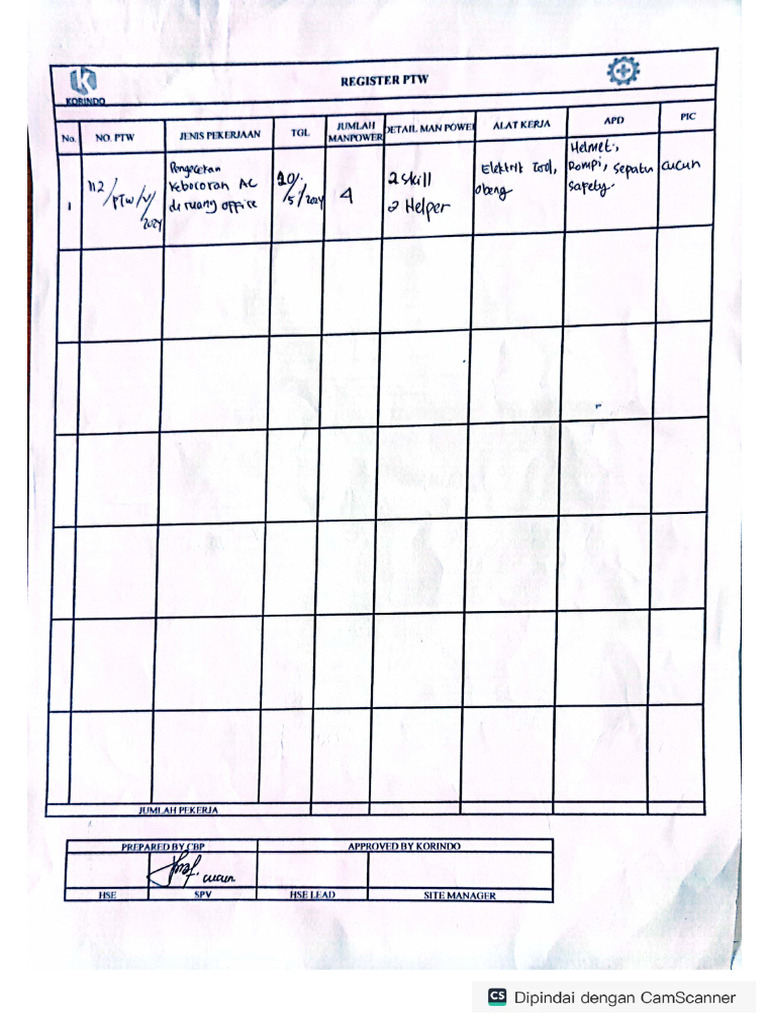 KORINDO
REGISTER PTW
No.
NO. PTW
JENIS PEKERJAAN
TGL
JUMLAH
MANPOWER
DETAIL MAN POWER
ALAT KERJA
APD
PIC
1
112/PTW/V/2024
Pengecekan
Kebocoran AC
di ruang office
20/5/2024
4
2 skill
2 Helper
Elektrik Tool,
obeng
Helmet,
Rompi, sepatu
safety.
cucun
JUMLAH PEKERJA
PREPARED BY CBP
APPROVED BY KORINDO
cucun
HSE
SPV
HSE LEAD
SITE MANAGER
CS Dipindai dengan CamScanner